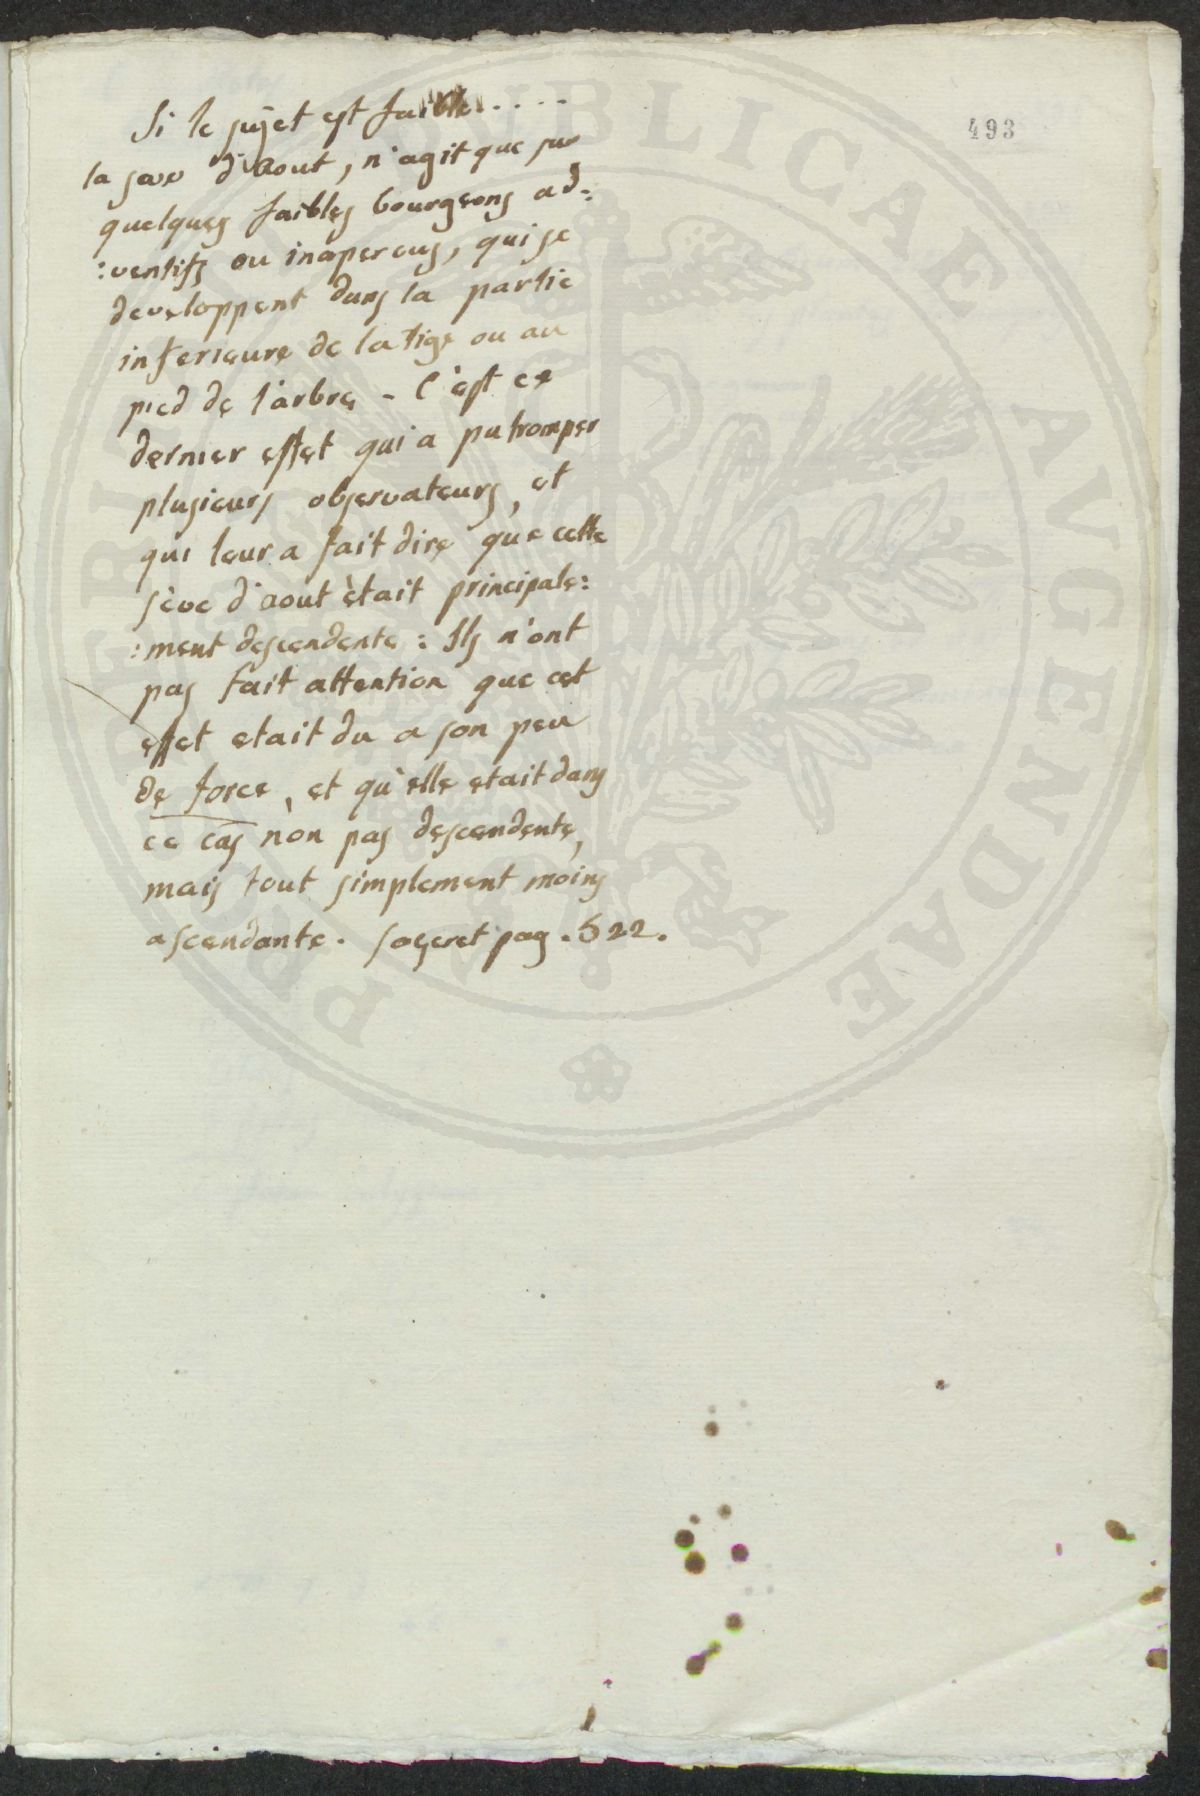 493
Si le sujet est faible . . . .
la seve d'aout, n'agit que sur
quelques faibles bourgeons ad:
:ventifs ou inapercus, qui se
developpent dans la partie
inferieure de la tige ou au
pied de l'arbre - C'est ce
dernier effet qui a pu tromper
plusieurs observateurs, et
qui leur a fait dire que cette
sève d'aout était principale:
:ment descendente : Ils n'ont
pas fait attention que cet
effet etait du a son peu
de force, et qu'elle etait dans
ce cas non pas descendente,
mais tout simplement moins
ascendante. sageret pag. 522.
PUBLICAE AVGENDAE